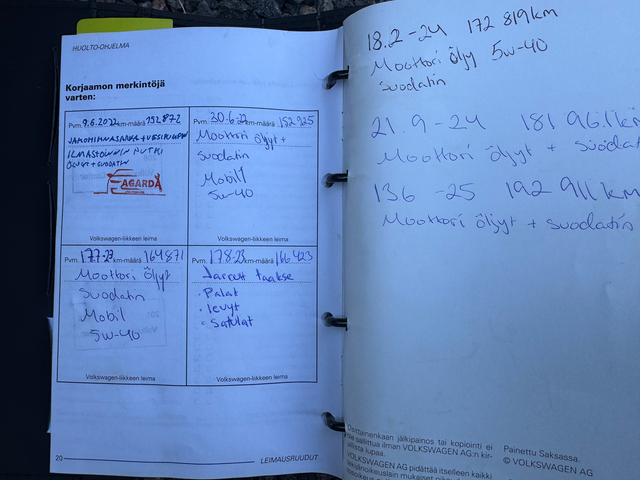 HUOLTO-OHJELMA
Korjaamon merkintöjä
varten:
Pvm. 9.6.2022 km-määrä 152872
JAKOHIHNASARJA + VESIPUMPPU
ILMASTOINNIN PUTKI
ÖLJYT + SUODATIN
AGARDA
Volkswagen-liikkeen leima
Pvm. 30.6-22 km-määrä 152925
Moottori öljyt +
suodatin
Mobil1
5w-40
Volkswagen-liikkeen leima
Pvm. 17.7-23 km-määrä 164871
Moottori Öljyt
Suodatin
Mobil
5w-40
Volkswagen-liikkeen leima
Pvm. 17.8-23 km-määrä 166423
Jarrut taakse
· Palat
· levyt
· Satulat
Volkswagen-liikkeen leima
20
LEIMAUSRUUDUT
18.2-24 172 819km
Moottori öljy 5w-40
suodatin
21.9-24 181 961km
Moottori öljyt + suodat
136-25 192 911 km
Moottori öljyt + suodatin
Osittainenkaan jälkipainos tai kopiointi ei
ole sallittua ilman VOLKSWAGEN AG:n kir-
jallista lupaa.
VOLKSWAGEN AG pidättää itselleen kaikki
Painettu Saksassa.
© VOLKSWAGEN AG